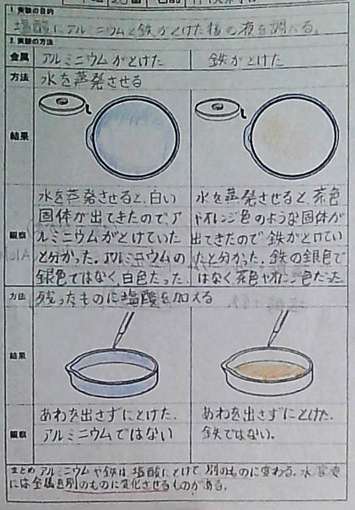 1. 実験の目的
塩酸にアルミニウムと鉄がとけた後の液を調べる。
2. 実験の方法
金属 アルミニウムがとけた 鉄がとけた
方法 水を蒸発させる
結果
観察
水を蒸発させると、白い
固体が出てきたので、ア
ルミニウムがとけていた
と分かった。アルミニウムの
銀色ではなく、白色だった。
水を蒸発させると、茶色
やオレンジ色のような固体が
出てきたので鉄がとけてい
たと分かった。鉄の銀色で
はなく茶色やオレンジ色だった。
方法 残ったものに塩酸を加える
結果
観察
あわを出さずにとけた。
アルミニウムではない
あわを出さずにとけた。
鉄ではない。
まとめ アルミニウムや鉄は塩酸にとけて、別のものに変わる。水
には金属を別のものに変化させるものがある。